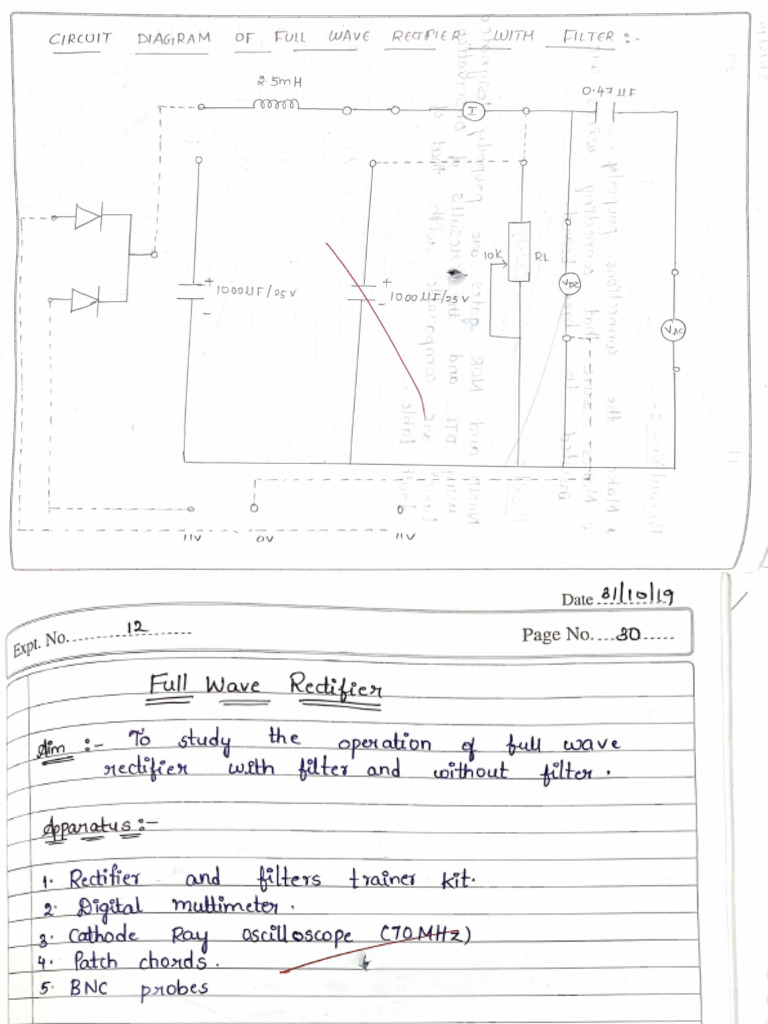 CIRCUIT DIAGRAM OF FULL WAVE RECTIFIER WITH FILTER :-
2.5mH
0.47µF
I
10K
RL
+
1000µF/25V
-
+
1000µF/25V
-
VDC
VAC
11V 0V 11V
Date 31/10/19
Expt. No. 12
Page No. 30
Full Wave Rectifier
Aim :- To study the operation of full wave
rectifier with filter and without filter.
Apparatus :-
1. Rectifier and filters trainer kit.
2. Digital multimeter.
3. Cathode Ray oscilloscope (70MHz)
4. Patch chords.
5. BNC probes